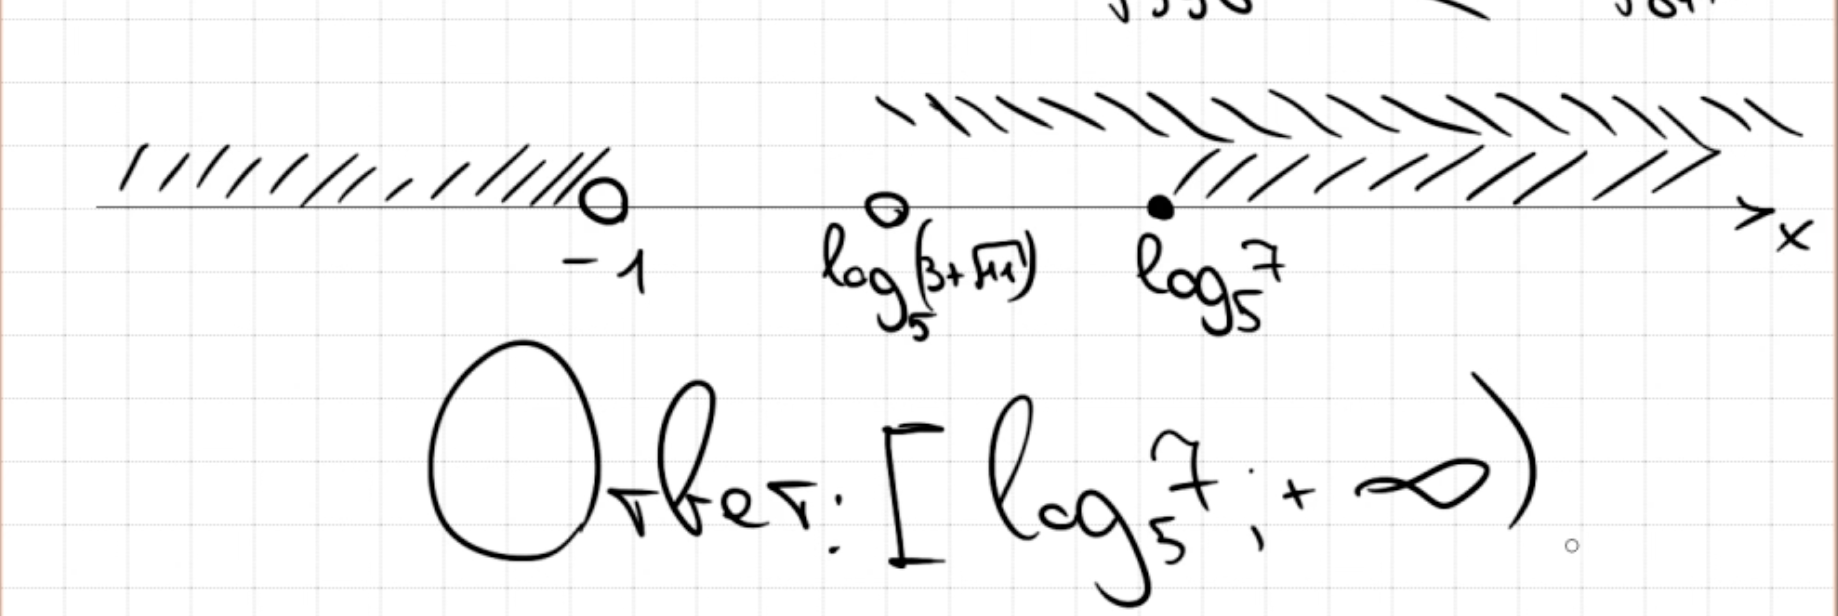 x
-1 log₅(3+√11) log₅7
Ответ: [log₅7; +∞)